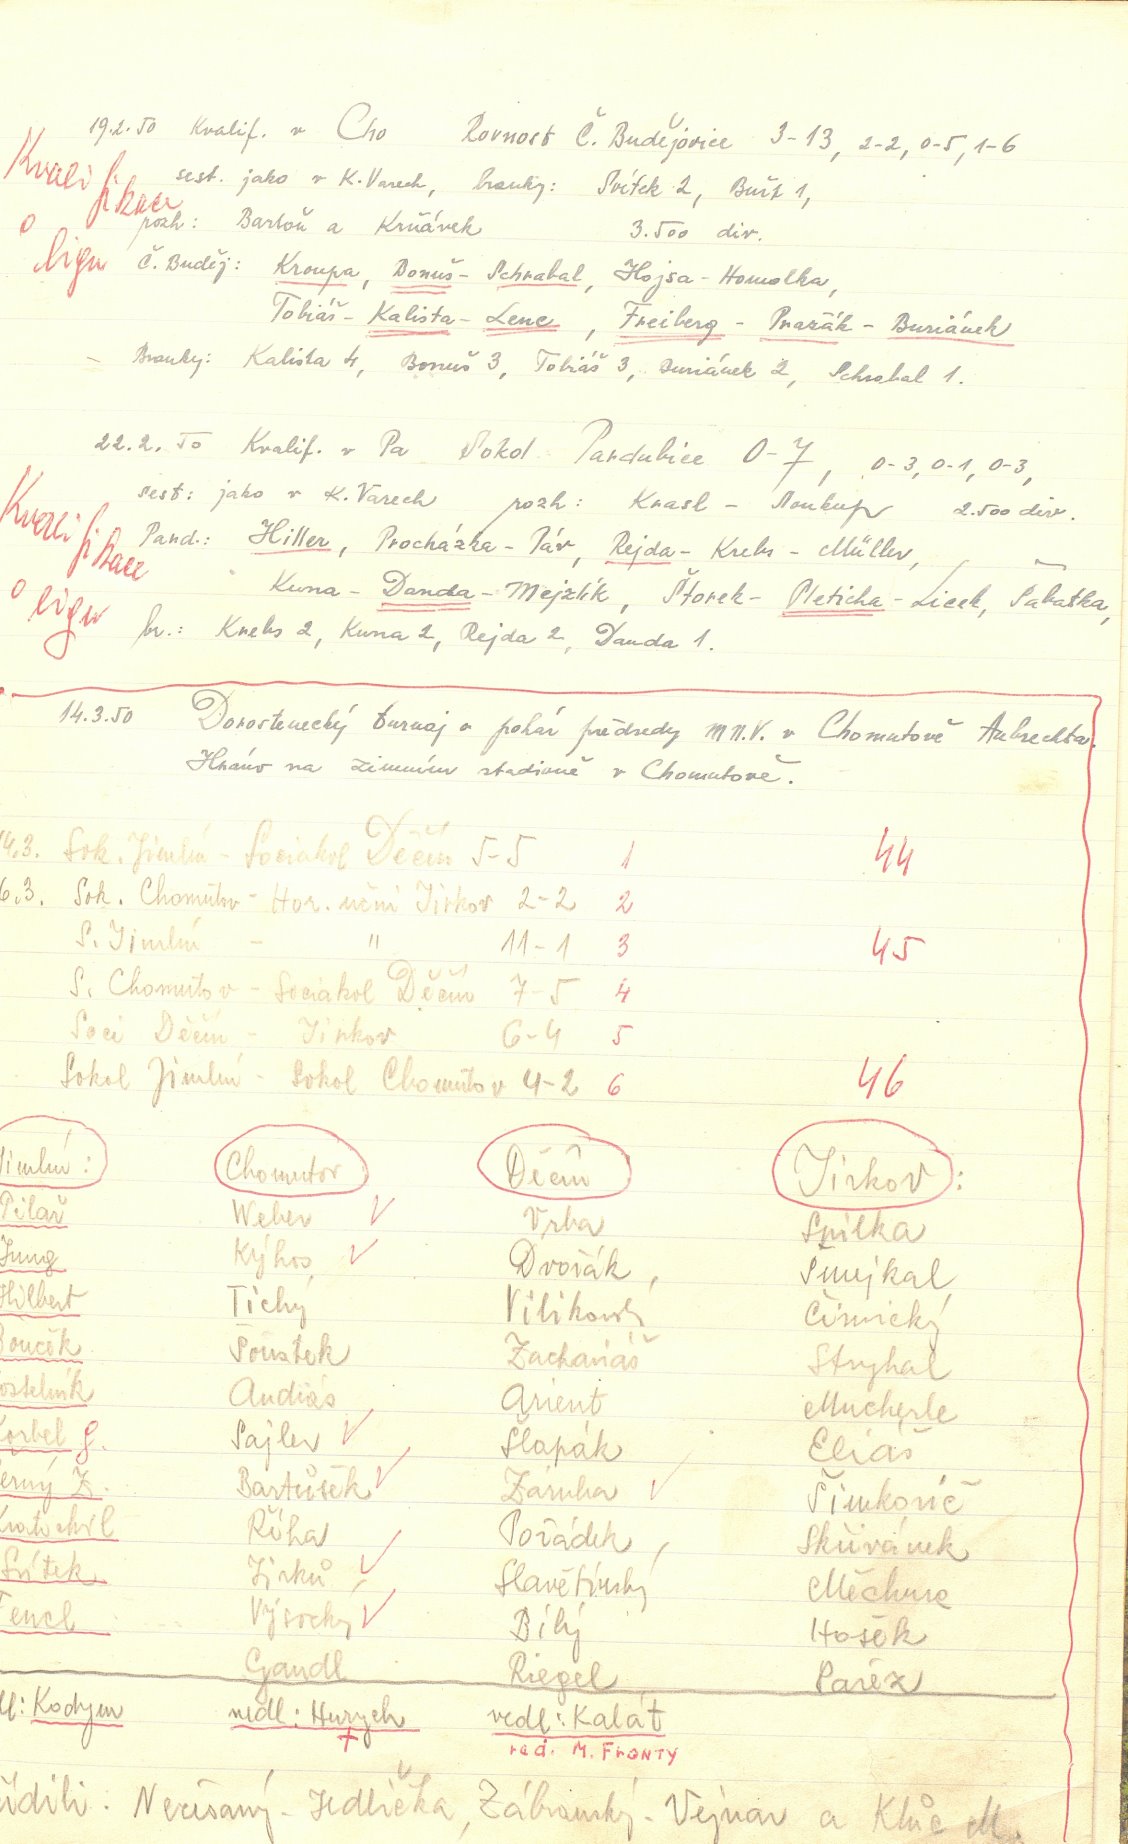 19.2.50 Kvalif. v Cho Rovnost Č. Budějovice 3-13, 2-2, 0-5, 1-6
Kvalifikace o ligu
sest. jako v K. Varech, branky: Svítek 2, Bušt 1,
rozh: Bartoň a Krňávek 3.500 div.
Č. Buděj: Kroupa, Bonuš - Schrabal, Hojsa - Homolka,
Tobiáš - Kališta - Lenc, Freiberg - Pražák - Buriánek
- Branky: Kališta 4, Bonuš 3, Tobiáš 3, Buriánek 2, Schrabal 1.
22.2.50 Kvalif. v Pa Sokol Pardubice 0-7, 0-3, 0-1, 0-3,
Kvalifikace o ligu
sest: jako v K. Varech rozh: Krasl - Soukup 2.500 div.
Pard.: Hiller, Procházka - Páv, Rejda - Krebs - Müller,
Kuna - Danda - Mejzlík, Štorek - Pleticha - Licek, Šabatka,
br.: Krebs 2, Kuna 2, Rejda 2, Danda 1.
14.3.50 Dorostenecký turnaj o pohár předsedy M.N.V. v Chomutově Aubrechta.
Hráno na zimním stadioně v Chomutově.
14.3. Sok. Jimlín - Sociakol Děčín 5-5 1 44
6.3. Sok. Chomutov - Hor. učni Jirkov 2-2 2
S. Jimlín - " 11-1 3 45
S. Chomutov - Sociakol Děčín 7-5 4
Soci Děčín - Jirkov 6-4 5
Sokol Jimlín - Sokol Chomutov 4-2 6 46
Jimlín: Chomutov Děčín Jirkov:
Pilař Weber Vrba Spilka
Jung Kýhos Dvořák, Šmejkal
Hilbert Tichý Vilikovský Černický
Bouček Pouštek Zachariáš Stryhal
Kostelník Andrés Arient Mucherle
Korbel J. Sajler Šlapák Eliáš
Černý Z. Bartůšek Záruba Šimkovič
Kratochvíl Říha Pořádek, Skřivánek
Svítek Jirků Slavětínský Měchura
Fencl Vysocký Bílý Hošek
Gandl Riegel Paréz
dl: Kodym vedl: Hurych vedl: Kalát
red. M. FRONTY
řídili: Nečesaný - Jedlička, Zábranský - Vejnar a Klůc M.